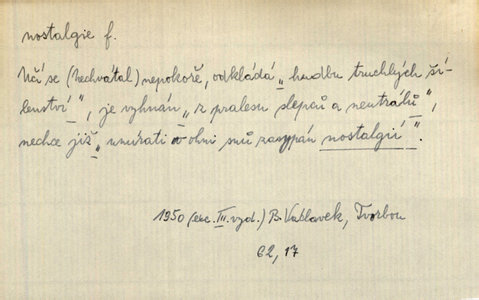 nostalgie f.
Učí se (Nechvátal) nepokoře, odkládá „hudbu truchlých ší-
lenství", je vyhnán „z pralesu slepců a neutrálů",
nechce již „umírati v ohni snů zasypán nostalgií".
1950 (exc. III. vyd.) B. Václavek, Tvorbou
62, 17